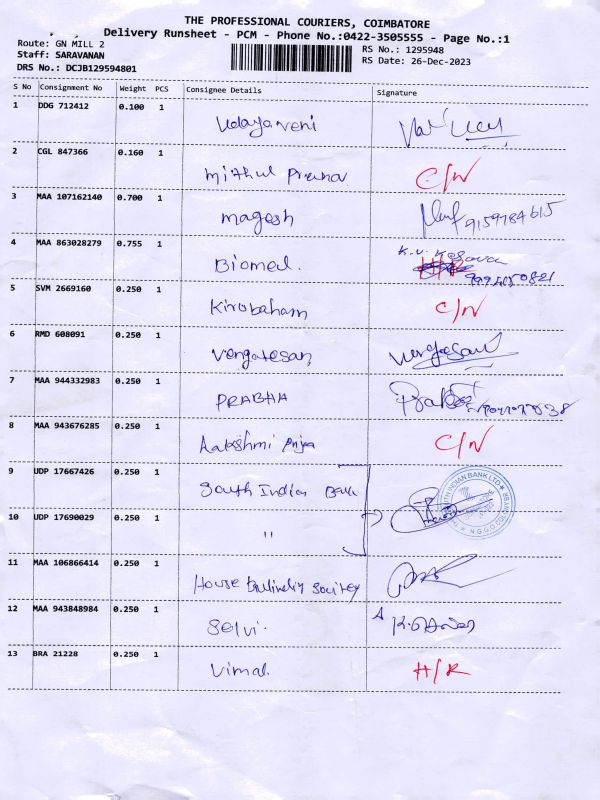 THE PROFESSIONAL COURIERS, COIMBATORE
Delivery Runsheet - PCM - Phone No.:0422-3505555 - Page No.:1
Route: GN MILL 2
RS No.: 1295948
Staff: SARAVANAN
RS Date: 26-Dec-2023
DRS No.: DCJB129594801
S No Consignment No Weight PCS Consignee Details Signature
1 DDG 712412 0.100 1 Udayaveni
2 CGL 847366 0.160 1 Mithul Prana C/N
3 MAA 107162140 0.700 1 magesh 9159784615
4 MAA 863028279 0.755 1 Biomed. K.V. Kesavan
5 SVM 2669160 0.250 1 Kirubaham C/N
6 RMD 608091 0.250 1 Vengatesan Vengatesan
7 MAA 944332983 0.250 1 PRABHA
8 MAA 943676285 0.250 1 C/N
9 UDP 17667426 0.250 1 South Indian Bank
10 UDP 17690029 0.250 1 "
SOUTH INDIAN BANK LTD.
11 MAA 106866414 0.250 1 House
12 MAA 943848984 0.250 1 Selvi.
13 BRA 21228 0.250 1 Vimal H/R